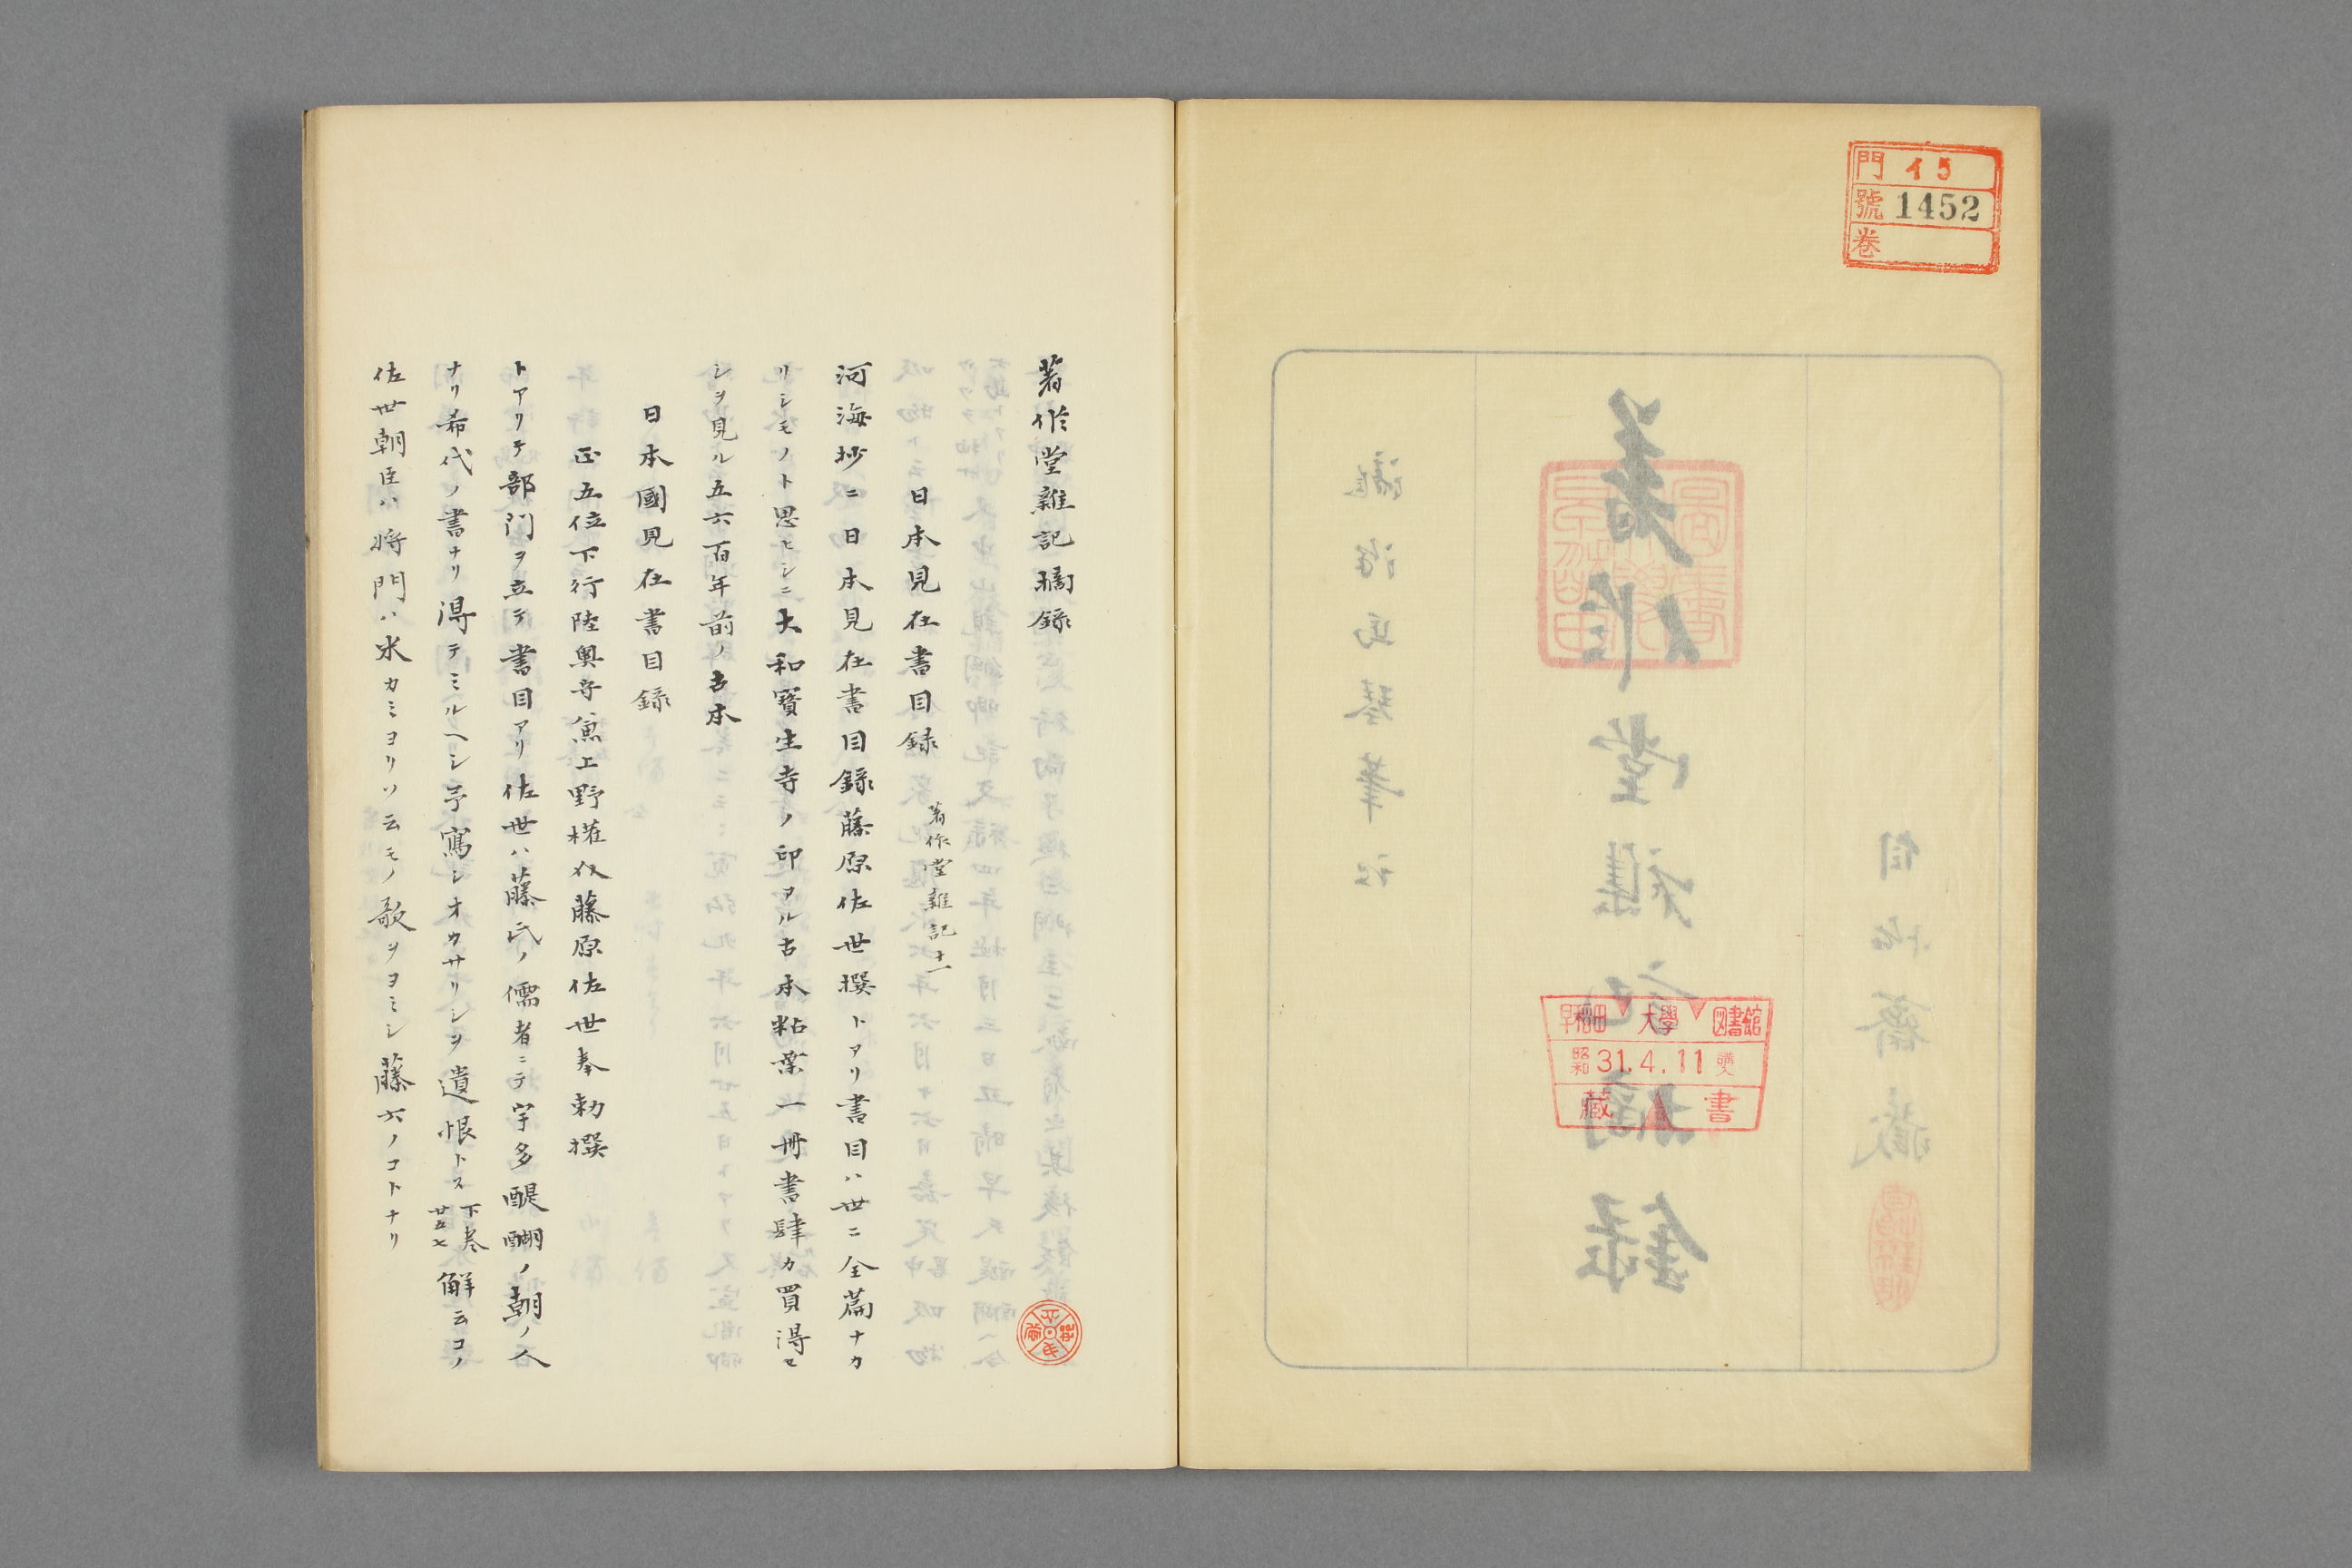 門 イ5
號 1452
巻
早稲田大學図書館
昭和 31.4.11 購
藏書
著作堂雜記摘録
日本見在書目録 著作堂雜記十一
河海抄ニ日本見在書目録藤原佐世撰トアリ書目ハ世ニ全篇ナカ
リシモノト思ヒシニ大和寶生寺ノ印アル古本粘葉一冊書肆カ買得セ
シヲ見ル五六百年前ノ古本
日本國見在書目録
正五位下行陸奥守兼上野権介藤原佐世奉勅撰
トアリテ部門ヲ立テ書目アリ佐世ハ藤氏ノ儒者ニテ宇多醍醐ノ朝ノ人
ナリ希代ノ書ナリ得テミルヘシ予寫シオカサリシヲ遺恨トス 下巻 解云コノ
佐世朝臣ハ将門ハ米カミヨリソ云モノ歌ヲヨミシ藤六ノコトナリ